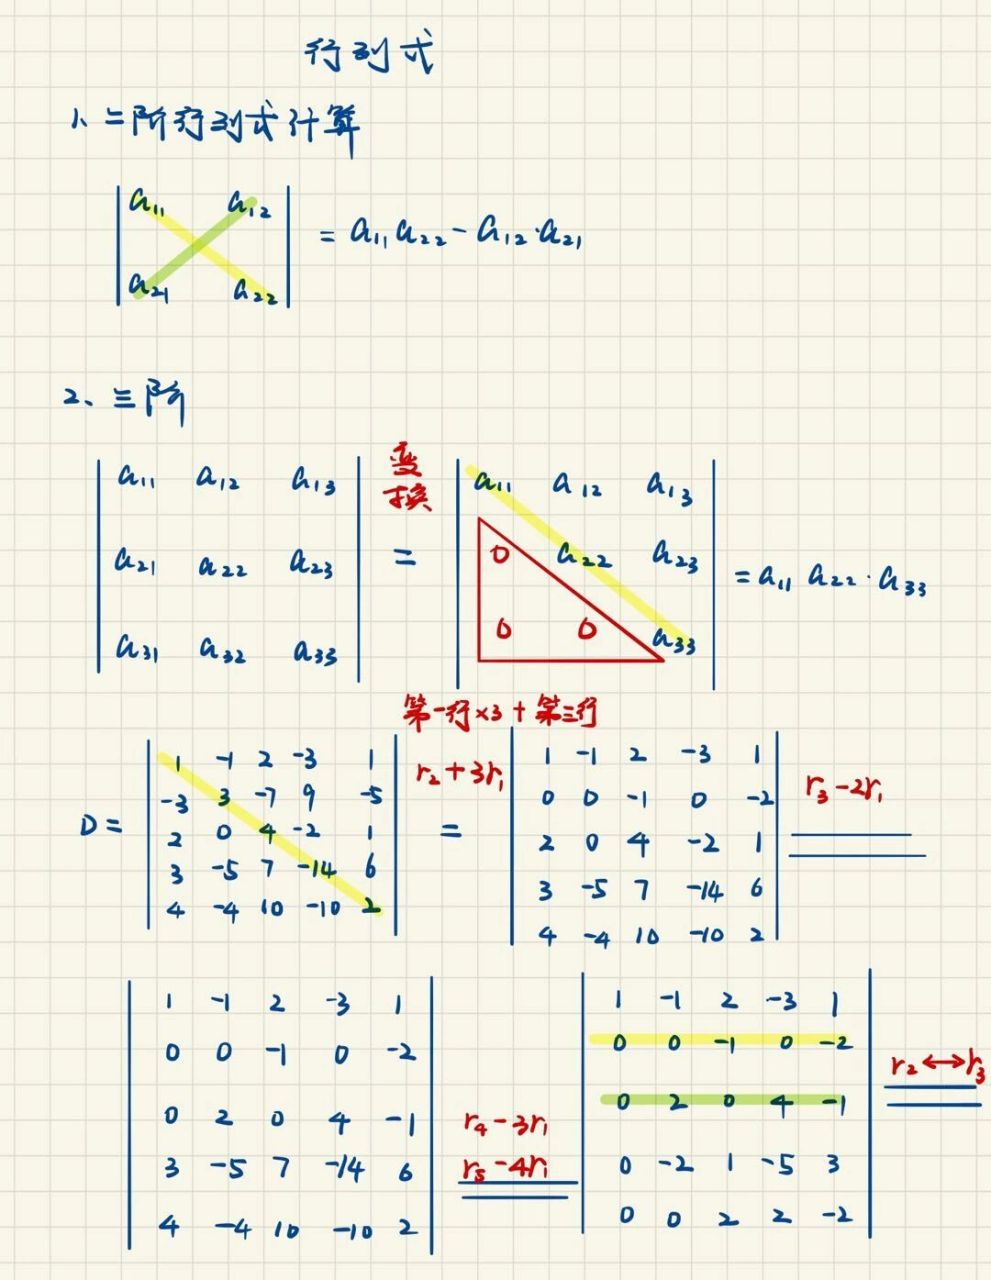 行列式
1、二阶行列式计算
a₁₁ a₁₂
a₂₁ a₂₂
= a₁₁a₂₂ - a₁₂·a₂₁
2、三阶
a₁₁ a₁₂ a₁₃
a₂₁ a₂₂ a₂₃
a₃₁ a₃₂ a₃₃
变
换
=
a₁₁ a₁₂ a₁₃
0 a₂₂ a₂₃
0 0 a₃₃
= a₁₁ a₂₂·a₃₃
第一行×3+第二行
D =
1 -1 2 -3 1
-3 3 -7 9 -5
2 0 4 -2 1
3 -5 7 -14 6
4 -4 10 -10 2
r₂+3r₁
=
1 -1 2 -3 1
0 0 -1 0 -2
2 0 4 -2 1
3 -5 7 -14 6
4 -4 10 -10 2
r₃-2r₁
1 -1 2 -3 1
0 0 -1 0 -2
0 2 0 4 -1
3 -5 7 -14 6
4 -4 10 -10 2
r₄-3r₁
r₅-4r₁
1 -1 2 -3 1
0 0 -1 0 -2
0 2 0 4 -1
0 -2 1 -5 3
0 0 2 2 -2
r₂↔r₃